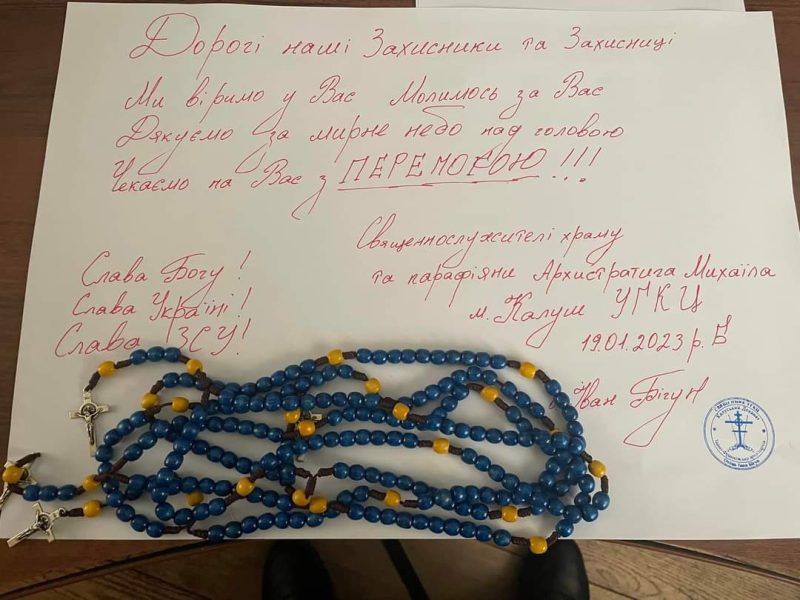 Дорогі наші Захисники та Захисниці
Ми віримо у Вас Молимось за Вас
Дякуємо за мирне небо над головою
Чекаємо на Вас з ПЕРЕМОГОЮ!!!
Священнослужителі храму
та парафіяни Архистратига Михаїла
м. Калуш УГКЦ
19.01.2023 р. Б
Іван Бігун
Слава Богу!
Слава Україні!
Слава ЗСУ!